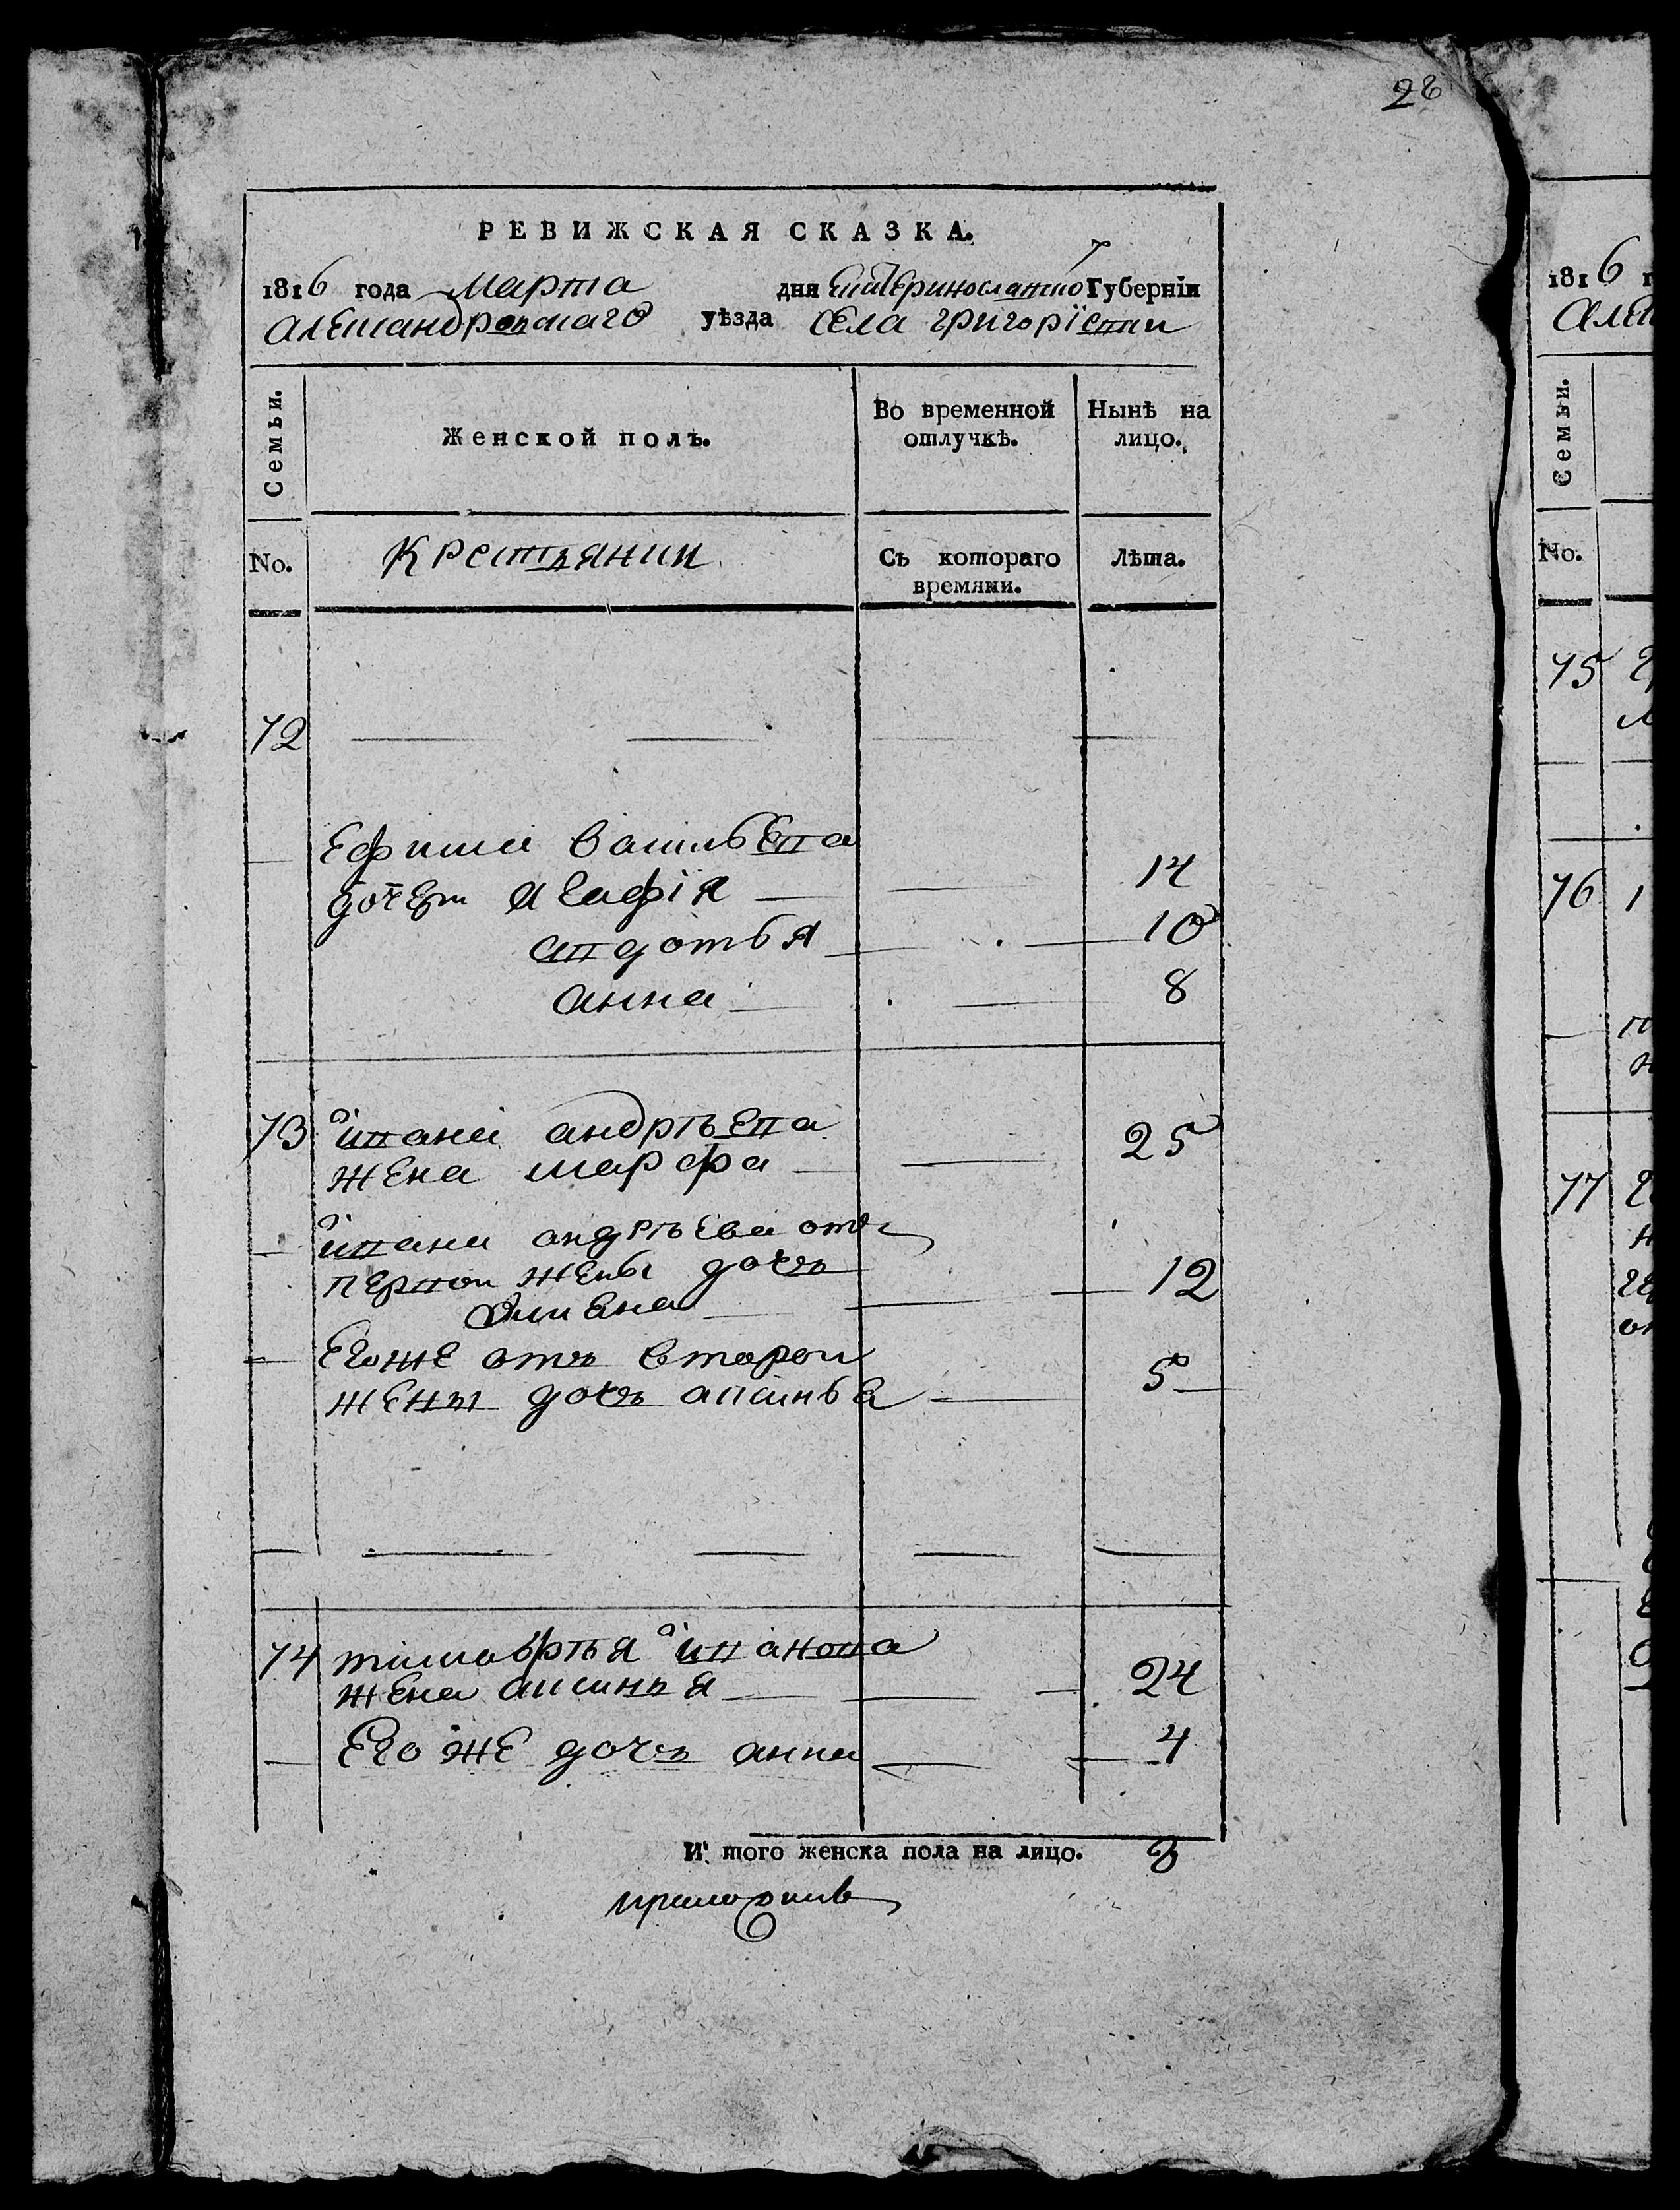 28
РЕВИЖСКАЯ СКАЗКА.
1816 года марта дня Екатеринославской Губерніи
Александровскаго уѣзда села григорїевки
Семьи.
Женской полъ.
Во временной отлучкѣ.
Нынѣ на лицо.
No.
Крестьянин
Съ котораго времяни.
Лѣта.
72
Ефима Васильева
дочери агафія 14
авдотья 10
анна 8
73 ивана андрѣева
жена марфа 25
ивана андрѣева отъ
первой жены дочь 12
Егоже отъ второй
жены дочь аксинья 5
74 тимофѣя иванова
жена аксинья 24
Его же дочь анна 4
И того женска пола на лицо. 8
1816 г
Семьи.
No.
75
76
77